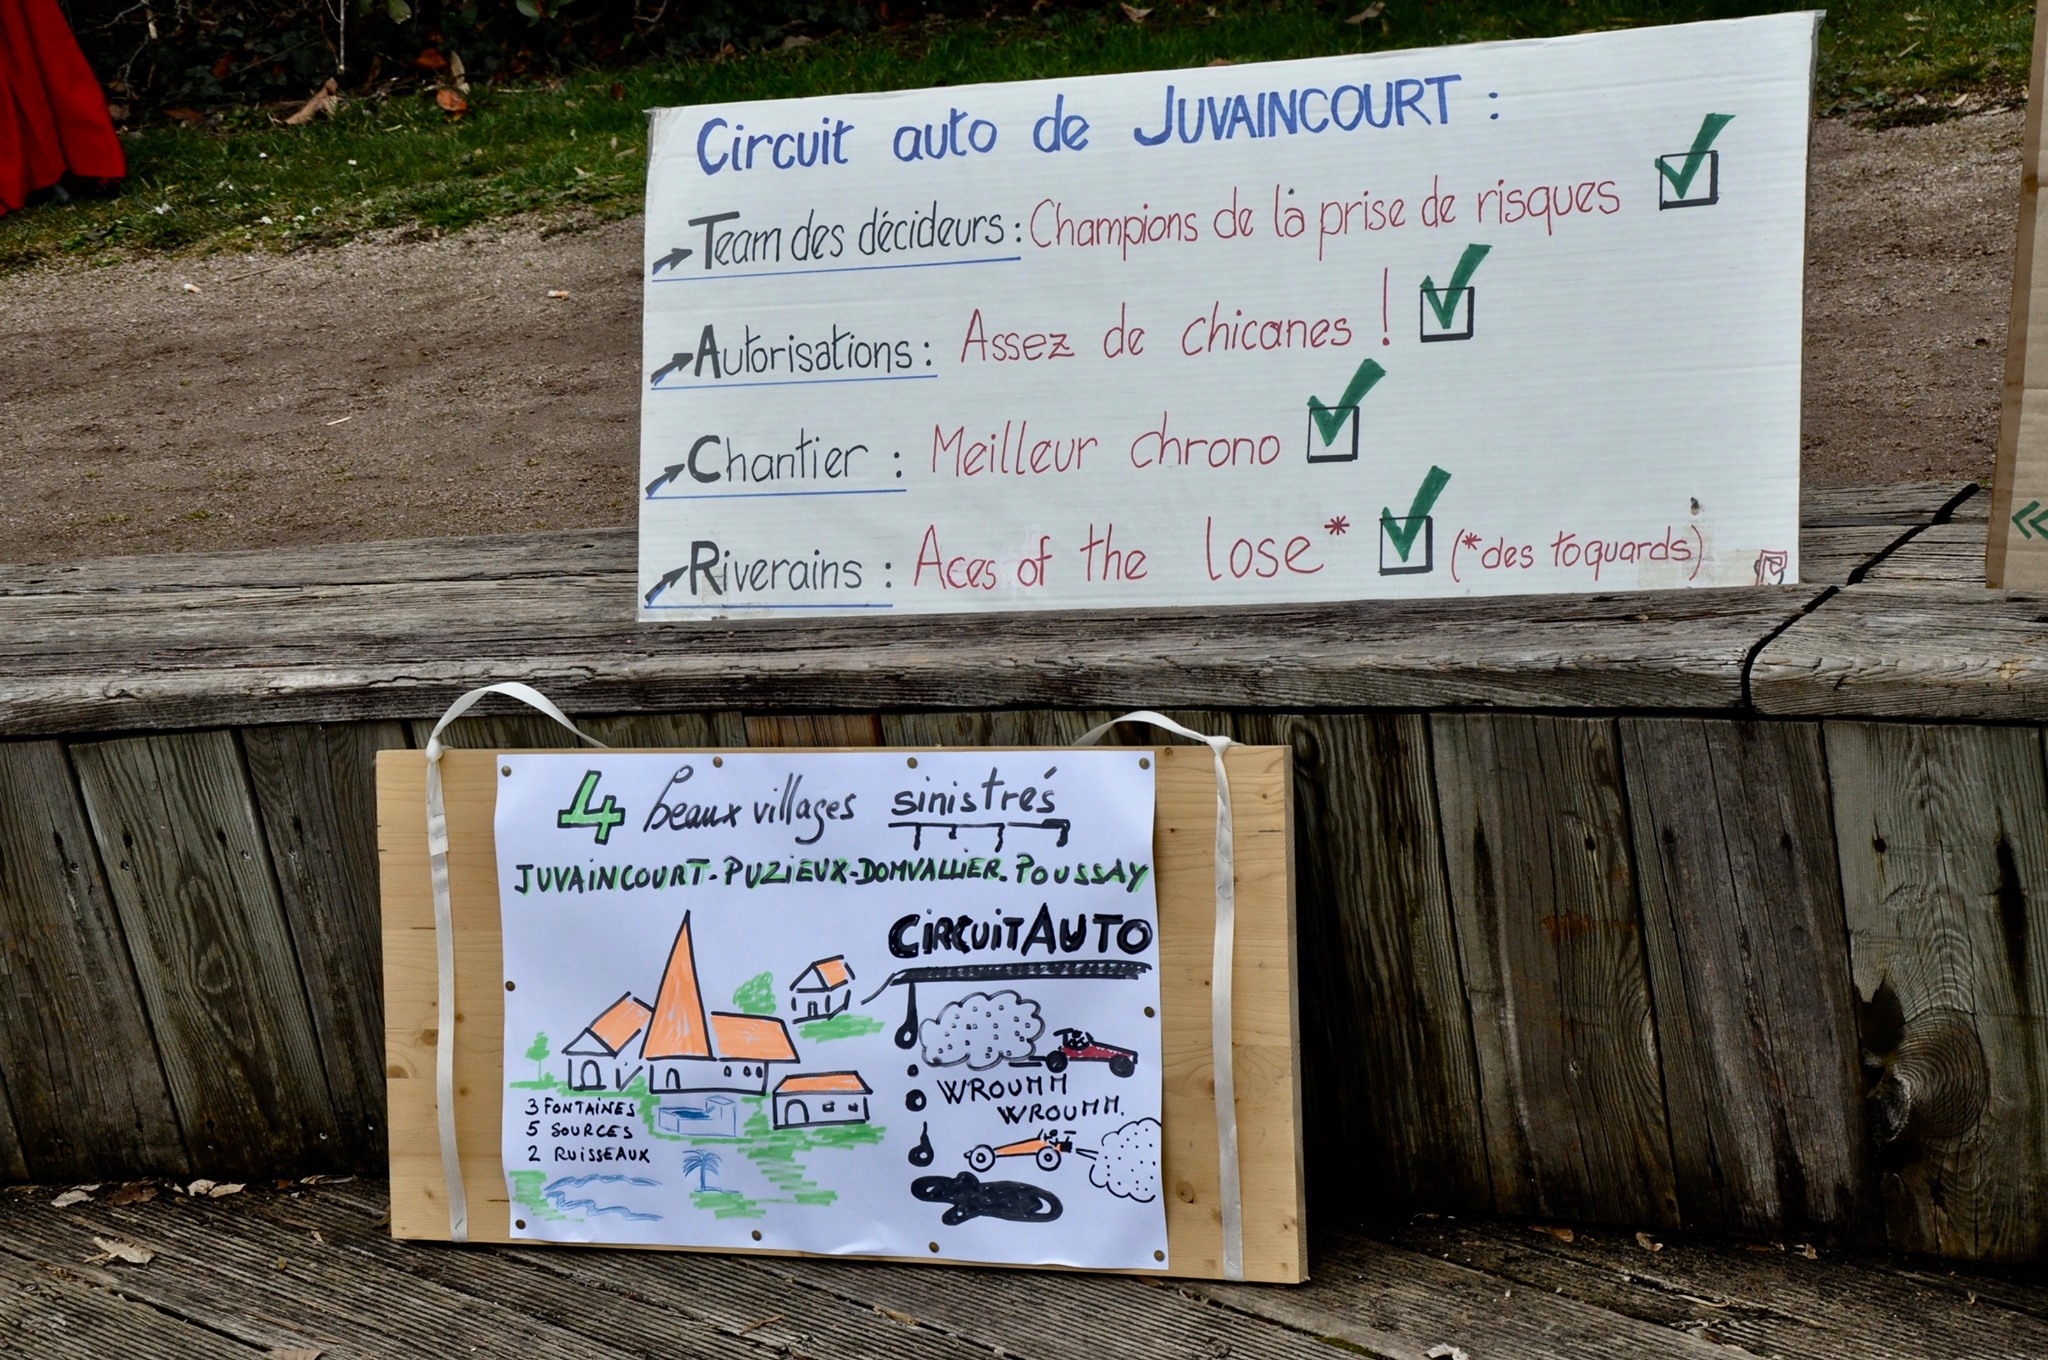 Circuit auto de JUVAINCOURT :
Team des décideurs : Champions de la prise de risques
Autorisations : Assez de chicanes !
Chantier : Meilleur chrono
Riverains : Aces of the lose* (*des toquards)
4 beaux villages sinistrés
JUVAINCOURT. PUZIEUX-DOMVALLIER. POUSSAY
CIRCUIT AUTO
WROUMM
WROUMM.
3 FONTAINES
5 SOURCES
2 RUISSEAUX